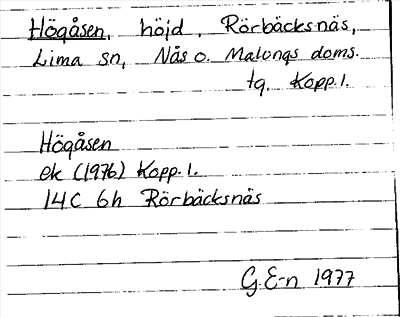 Högåsen, höjd, Rörbäcksnäs,
Lima sn, Nås o. Malungs doms.
tg. Kopp. l.
Högåsen
ek (1976) Kopp. l.
14C 6h Rörbäcksnäs
G. E-n 1977